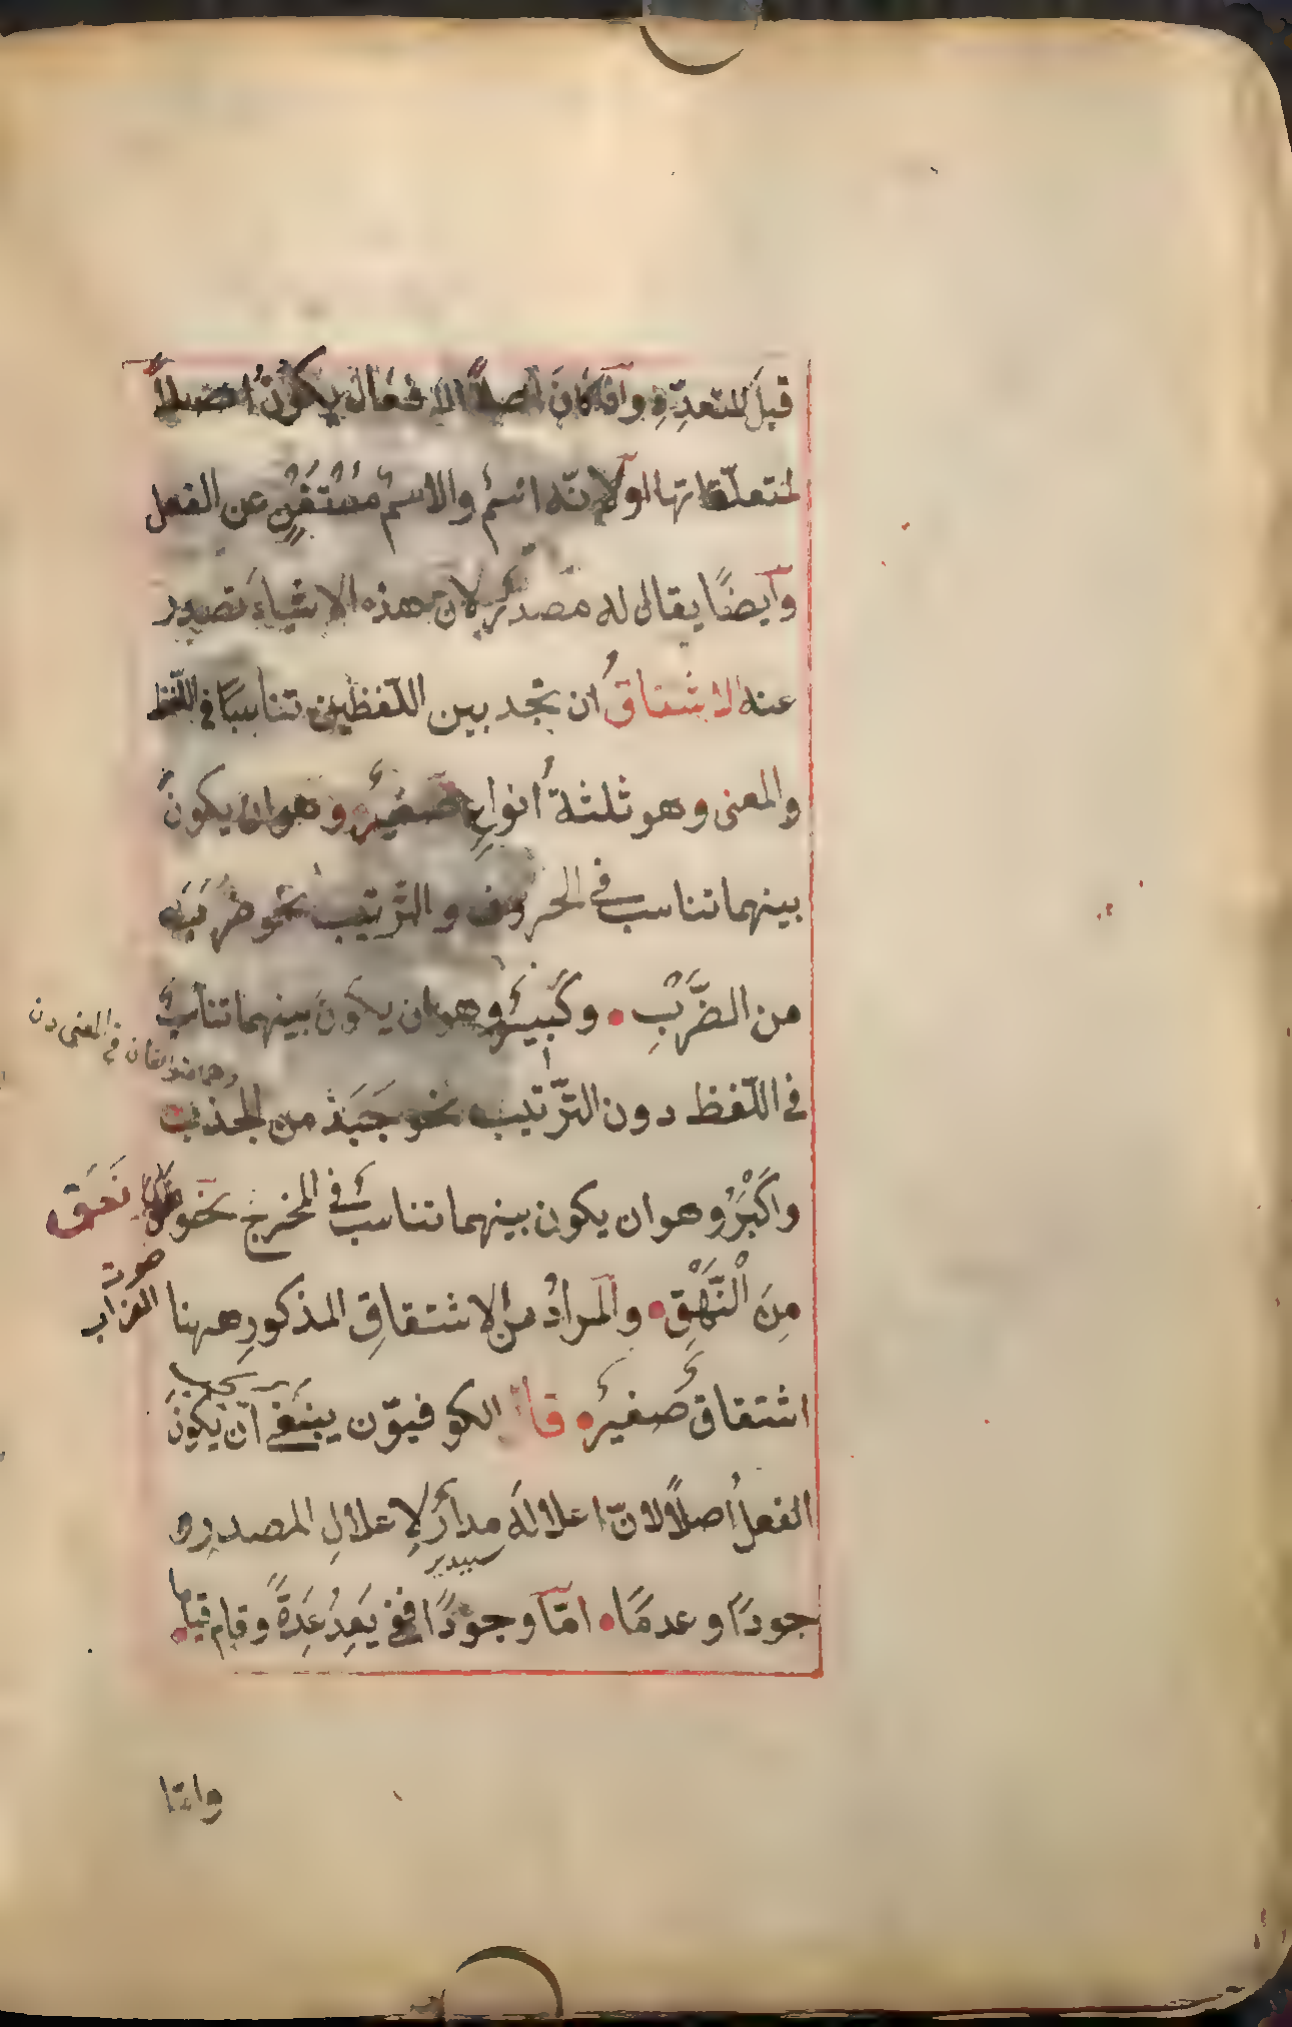 قبلَ المتعدِّدِ واذا كانَ اصلًا للافعال يكونُ اصلًا
لمتعلّقاتها اَولانّه اسمٌ والاسمُ مُسْتَغْنٍ عن الفعل
وَايضًا يقال له مصدرٌ لانّ هذه الاشياءَ تصدر
عنه الاشتقاقُ ان تجد بين اللّفظَين تناسبًا في اللّفظ
والمعنى وهو ثلثةُ انواعٍ صغيرٌ وهو ان يكونَ
بينهما تناسبٌ في الحروف والتّرتيب نحو ضَرَبَ
من الضَّرْبِ • وكَبيرٌ وهو ان يكونَ بينهما تناسبٌ
في اللّفظ دون التّرتيب نحو جَبَذَ من الجذب
وهما متوافقان في المعنى
واَكْبَرُ وهو ان يكون بينهما تناسبٌ في المخرج نحو نَعَقَ
صوت
الغراب
مِنَ الْنَّهْقِ • والمرادُ من الاشتقاقِ المذكورِ ههنا
اشتقاقٌ صغيرٌ • قال الكوفيّون ينبغي اَن يكونَ
يجب
الفعلُ اصلًا لانّ اعلالَه مدارٌ لِاعلالِ المصدر و
سببدير
جودًا وعدمًا • امّا وجودًا ففي يَعِدُ عِدَةً وقام قيامًا •
وامّا